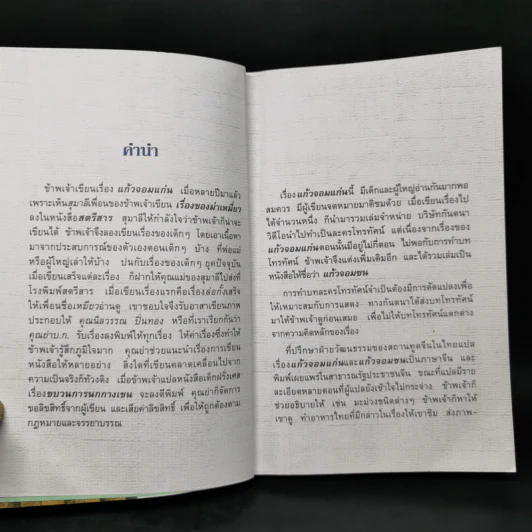 คำนำ
ข้าพเจ้าเขียนเรื่อง แก้วจอมแก่น เมื่อหลายปีมาแล้ว
เพราะเห็นสุมาลีเพื่อนของข้าพเจ้าเขียน เรื่องของม่าเหมี่ยว
ลงในหนังสือสตรีสาร สุมาลีให้กำลังใจว่าข้าพเจ้าก็น่าจะ
เขียนได้ ข้าพเจ้าจึงลองเขียนเรื่องของเด็กๆ โดยเอาเนื้อหา
มาจากประสบการณ์ของตัวเองตอนเด็กๆ บ้าง ที่พ่อแม่
หรือผู้ใหญ่เล่าให้บ้าง ปนกับเรื่องของเด็กๆ ยุคปัจจุบัน
เมื่อเขียนเสร็จแต่ละเรื่อง ก็ฝากให้คุณแม่ของสุมาลีไปส่งที่
โรงพิมพ์สตรีสาร เมื่อเขียนเรื่องแรกคือเรื่องล่อกั้งเสร็จ
ให้เพื่อนชื่อเหมียวอ่านดู เขาชอบใจจึงรับอาสาเขียนภาพ
ประกอบให้ คุณนิลวรรณ ปิ่นทอง หรือที่เราเรียกกันว่า
คุณย่าบ.ก. รับเรื่องลงพิมพ์ให้ทุกเรื่อง ให้ค่าเรื่องซึ่งทำให้
ข้าพเจ้ารู้สึกภูมิใจมาก คุณย่าช่วยแนะนำเรื่องการเขียน
หนังสือให้หลายอย่าง สิ่งใดที่เขียนคลาดเคลื่อนไปจาก
ความเป็นจริงก็ท้วงติง เมื่อข้าพเจ้าแปลหนังสือเด็กฝรั่งเศส
เรื่องขบวนการนกกางเขน จะลงตีพิมพ์ คุณย่าก็จัดการ
ขอลิขสิทธิ์จากผู้เขียน และเสียค่าลิขสิทธิ์ เพื่อให้ถูกต้องตาม
กฎหมายและจรรยาบรรณ
เรื่องแก้วจอมแก่นนี้ มีเด็กและผู้ใหญ่อ่านกันมากพอ
สมควร มีผู้เขียนจดหมายมาติชมด้วย เมื่อเขียนเรื่องไป
ได้จำนวนหนึ่ง ก็นำมารวมเล่มจำหน่าย บริษัทกันตนา
วิดีโอนำไปทำเป็นละครโทรทัศน์ แต่เนื่องจากเรื่องของ
แก้วจอมแก่นตอนนั้นมีอยู่ไม่กี่ตอน ไม่พอกับการทำบท
โทรทัศน์ ข้าพเจ้าจึงแต่งเพิ่มเติมอีก และได้รวมเล่มเป็น
หนังสือให้ชื่อว่า แก้วจอมซน
การทำบทละครโทรทัศน์จำเป็นต้องมีการดัดแปลงเพื่อ
ให้เหมาะสมกับการแสดง ทางกันตนาได้ส่งบทโทรทัศน์
มาให้ข้าพเจ้าดูก่อนเสมอ เพื่อไม่ให้บทโทรทัศน์แตกต่าง
จากความคิดหลักของเรื่อง
ที่ปรึกษาฝ่ายวัฒนธรรมของสถานทูตจีนในไทยแปล
เรื่องแก้วจอมแก่นและแก้วจอมซนเป็นภาษาจีน และ
พิมพ์เผยแพร่ในสาธารณรัฐประชาชนจีน ขณะที่แปลมีราย
ละเอียดหลายตอนที่ผู้แปลยังเข้าใจไม่กระจ่าง ข้าพเจ้าก็
ช่วยอธิบายให้ เช่น มะม่วงชนิดต่างๆ ข้าพเจ้าก็หาให้
เขาดู ทำอาหารไทยที่มีกล่าวในเรื่องให้เขาชิม ส่งภาพ-